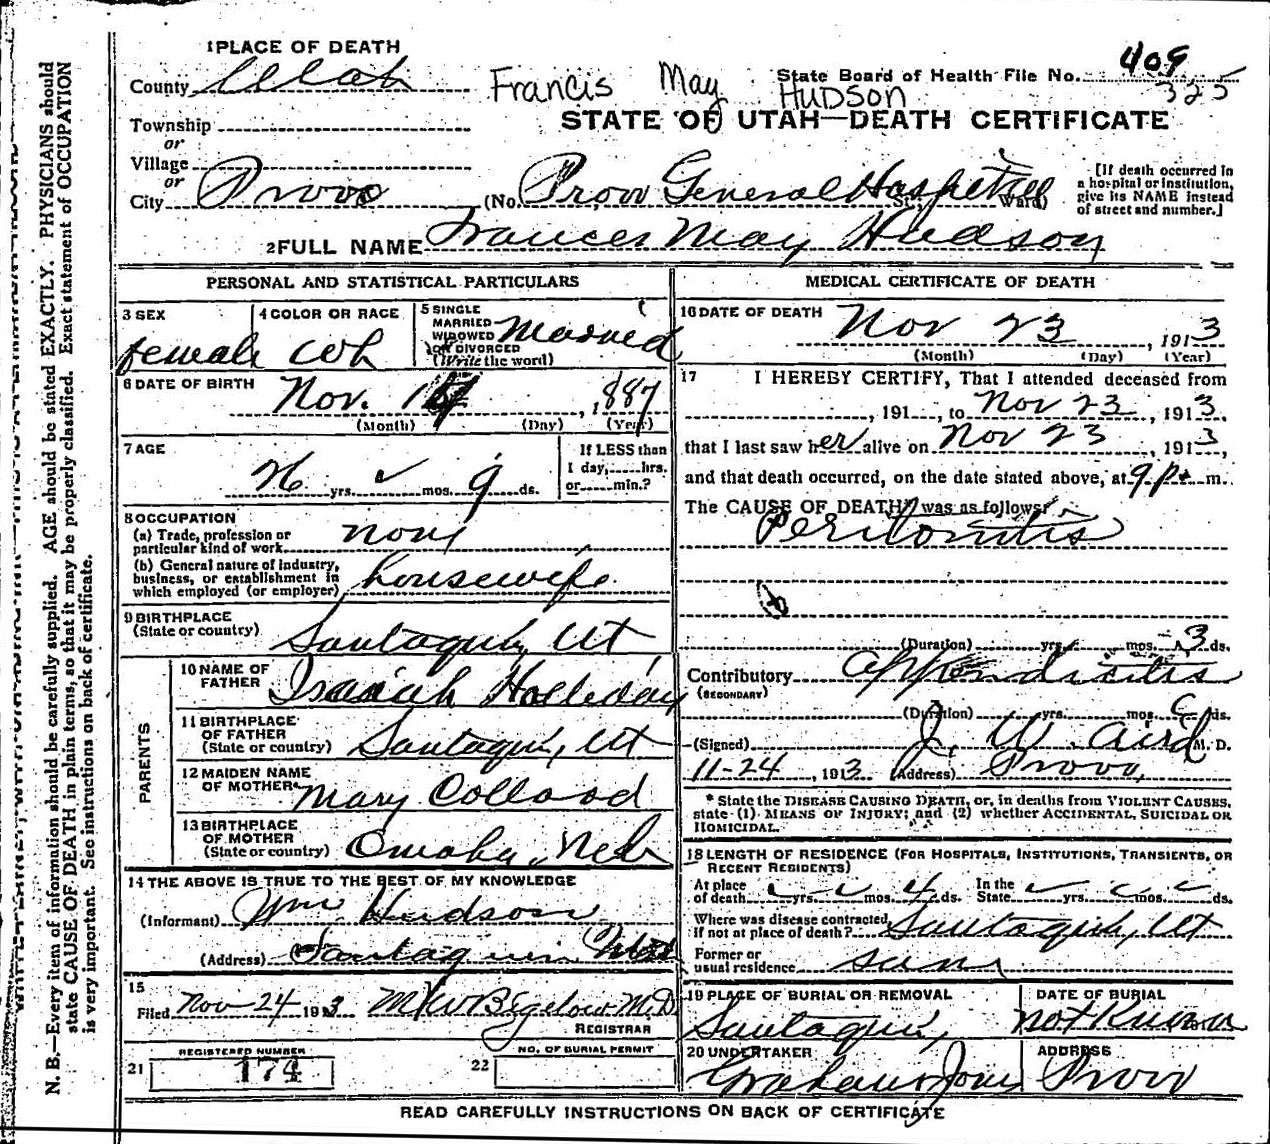 1 PLACE OF DEATH
County Utah
Francis May HUDSON
State Board of Health File No. 409
325
Township
or
Village
or
City Provo
STATE OF UTAH—DEATH CERTIFICATE
(No. Provo General Hospital St., Ward)
[If death occurred in a hospital or institution, give its NAME instead of street and number.]
2 FULL NAME Frances May Hudson
PERSONAL AND STATISTICAL PARTICULARS
3 SEX
female
4 COLOR OR RACE
Wh
5 SINGLE
MARRIED
WIDOWED
OR DIVORCED
(Write the word)
Married
6 DATE OF BIRTH
Nov. 1887
(Month) (Day) (Year)
7 AGE
26 yrs. mos. 9 ds.
If LESS than
1 day, hrs.
or min.?
8 OCCUPATION
(a) Trade, profession or
particular kind of work none
(b) General nature of industry,
business, or establishment in
which employed (or employer) housewife
9 BIRTHPLACE
(State or country) Santaquin, Ut
PARENTS
10 NAME OF
FATHER Isaiah Holladay
11 BIRTHPLACE
OF FATHER
(State or country) Santaquin, Ut
12 MAIDEN NAME
OF MOTHER Mary
13 BIRTHPLACE
OF MOTHER
(State or country) Omaha, Neb
14 THE ABOVE IS TRUE TO THE BEST OF MY KNOWLEDGE
(Informant) Wm Hudson
(Address) Santaquin Utah
15
Filed Nov-24 1913 Bigelow M.D.
REGISTRAR
21 REGISTERED NUMBER
174
22 NO. OF BURIAL PERMIT
MEDICAL CERTIFICATE OF DEATH
16 DATE OF DEATH Nov 23, 1913
(Month) (Day) (Year)
17 I HEREBY CERTIFY, That I attended deceased from
, 191 , to Nov 23, 1913,
that I last saw her alive on Nov 23, 1913,
and that death occurred, on the date stated above, at 9 p. m.
The CAUSE OF DEATH* was as follows:
Peritonitis
(Duration) yrs. mos. 3 ds.
Contributory appendicitis
(SECONDARY)
(Duration) yrs. mos. ds.
(Signed) J. W. Aird M. D.
11-24, 1913 (Address) Provo,
* State the DISEASE CAUSING DEATH, or, in deaths from VIOLENT CAUSES,
state (1) MEANS OF INJURY; and (2) whether ACCIDENTAL, SUICIDAL OR
HOMICIDAL.
18 LENGTH OF RESIDENCE (FOR HOSPITALS, INSTITUTIONS, TRANSIENTS, OR
RECENT RESIDENTS)
At place
of death yrs. mos. 4 ds. In the
State yrs. mos. ds.
Where was disease contracted,
if not at place of death? Santaquin, Ut
Former or
usual residence same
19 PLACE OF BURIAL OR REMOVAL
Santaquin,
DATE OF BURIAL
not Known
20 UNDERTAKER
ADDRESS
Provo
READ CAREFULLY INSTRUCTIONS ON BACK OF CERTIFICATE
N. B.—Every item of information should be carefully supplied. AGE should be stated EXACTLY. PHYSICIANS should
state CAUSE OF DEATH in plain terms, so that it may be properly classified. Exact statement of OCCUPATION
is very important. See instructions on back of certificate.